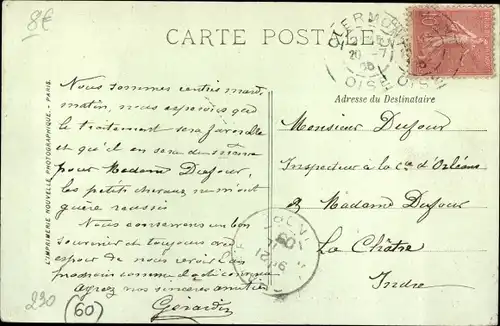 8€
CARTE POSTALE
CLERMONT
OISE
Adresse du Destinataire
Nous sommes rentrés mardi
matin, nous espérons que
le traitement sera favorable
et qu'il en sera de même
pour Madame Dufour,
les petits chevaux ne m'ont
guère réussis
Nous conservons un bon
souvenir et toujours au
espoir de nous revoir l'an
prochain comme
agréez nos sincères amitiés
Gérardin
Monsieur Dufour
Inspecteur à la Cie d'Orléans
& Madame Dufour
La Châtre
Indre
L'IMPRIMERIE NOUVELLE PHOTOGRAPHIQUE. - PARIS.
230
(60)